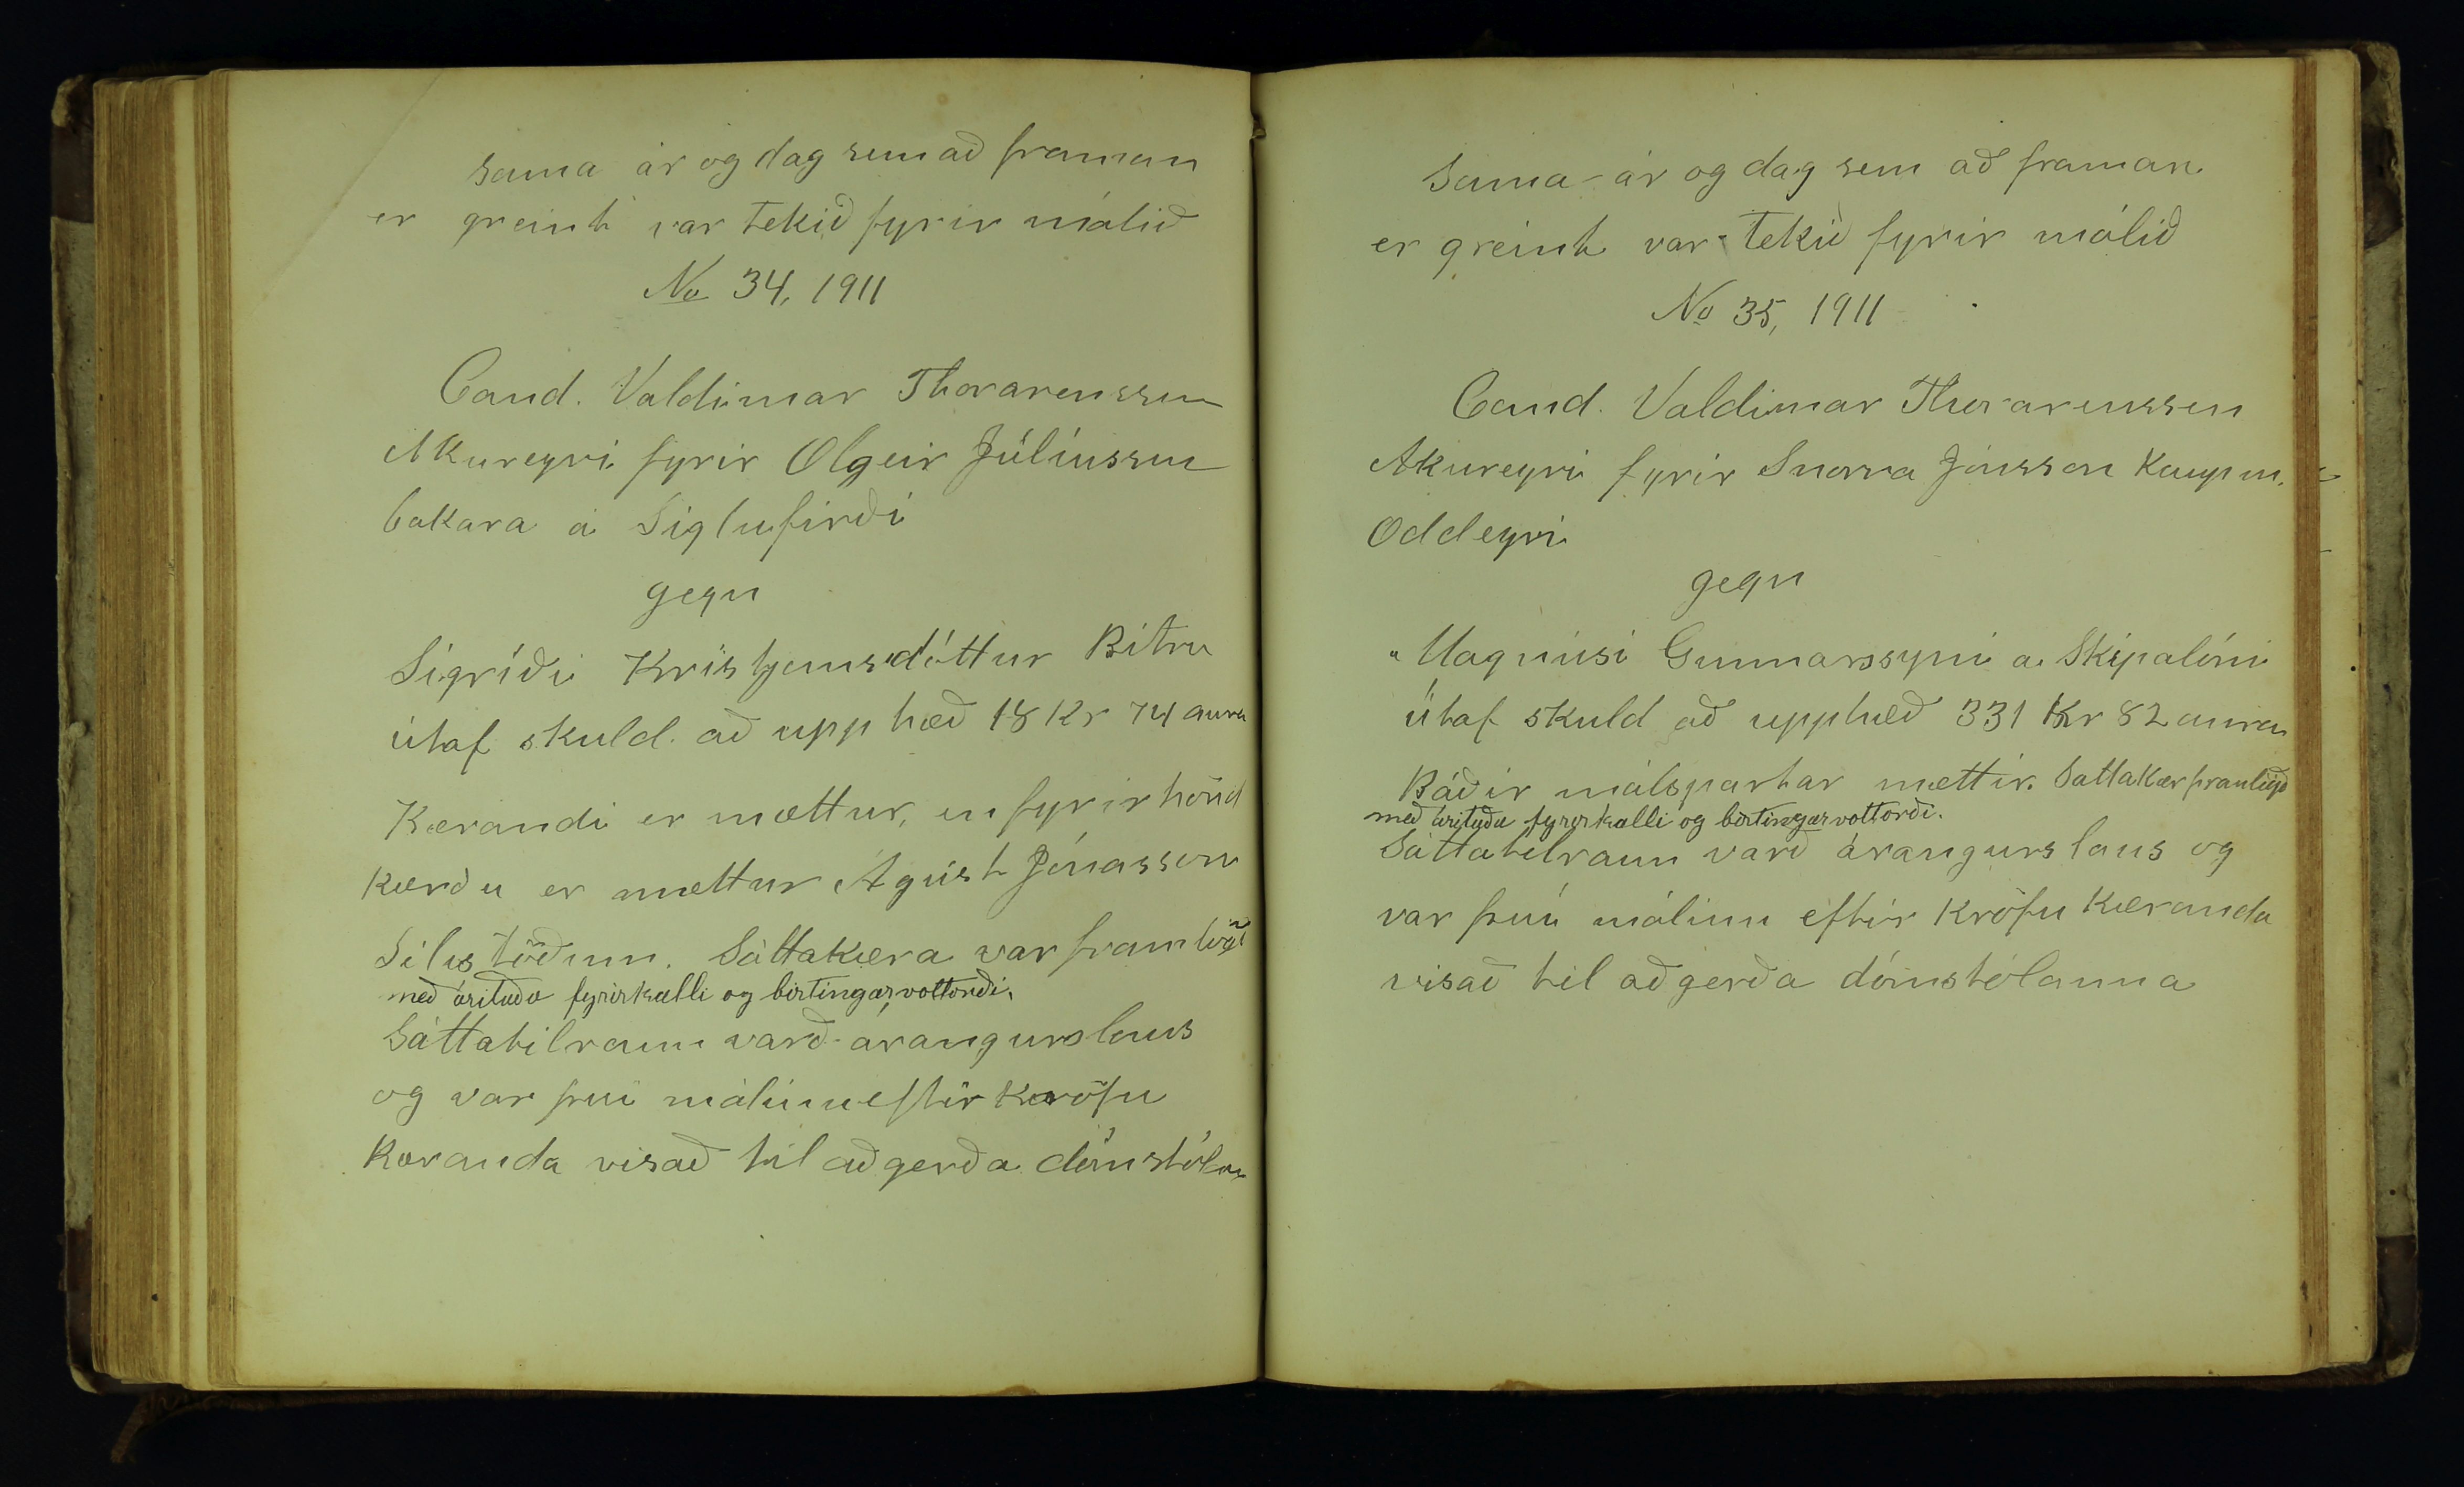 Sama ár og dag sem að framan
er greint var tekið fyrir málið
No 34, 1911
Cand. Valdimar Thorarenssen
Akureyri fyrir Olgeir Júlíussen
bakara á Siglufirði
gegn
Sigríði Kristjansdóttur Bitru
útaf skuld að upp hæð 18 Kr 74 aura
Kærandi er mættur, en fyrir hönd
kærðu er mættur Ágúst Jónasson
Silistöðum. Sáttakæra var fram lögð
með árituðu fyrirkalli og birtingarvottorði.
Sáttatilraun varð árangurslaus
og var því málinu eftir kröfu
Kæranda visað til aðgerða dómstólan
Sama ár og dag sem að framan
er greint var tekið fyrir málið
No 35, 1911
Cand. Valdimar Thorarenssen
Akureyri fyrir Snorra Jónsson Kaupm.
Oddeyri
gegn
Magnúsi Gunnarssyni á Skipalóni
Útaf skuld að upphæð 331 Kr 82 aura
Báðir málspartar mættir. Sáttakær framlögð
með árituðu fyrirkalli og birtingarvottorði.
Sáttatilraun varð árangurslaus og
var því málinu eftir kröfu kæranda
visað til aðgerða dómstólanna